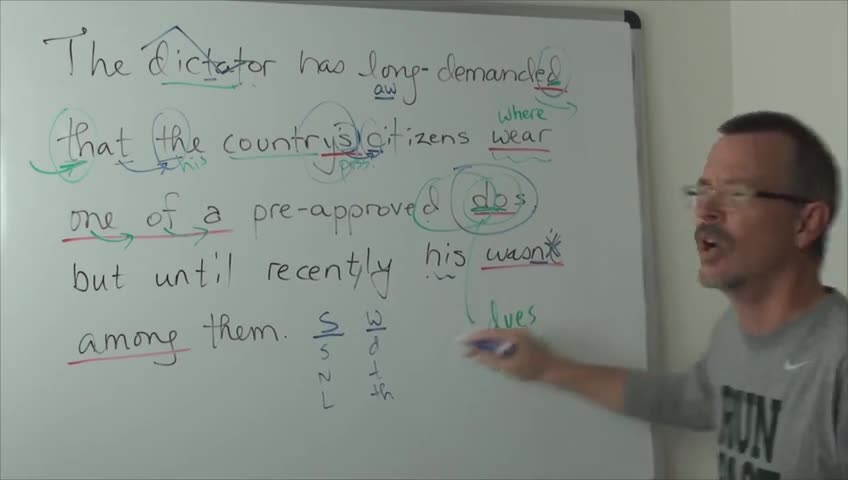 The dictator has long-demanded
aw
where
that the country's citizens wear
his poss.
one of a pre-approved dos
but until recently his wasn't
among them.
S W
dues
S d
N t
L th
RUN